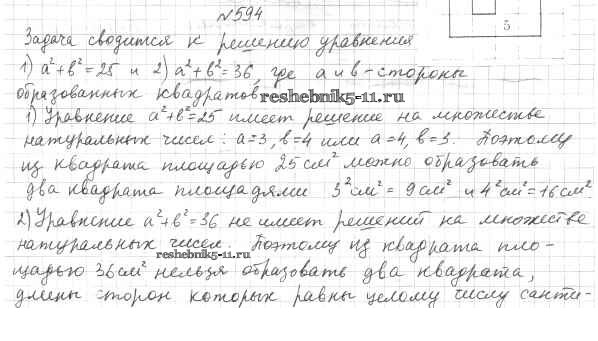 №594
5
Задача сводится к решению уравнения
1) a²+b²=25 и 2) a²+b²=36, где a и b - стороны
образованных квадратов.
reshebnik5-11.ru
1) Уравнение a²+b²=25 имеет решение на множестве
натуральных чисел: a=3, b=4 или a=4, b=3. Поэтому
из квадрата площадью 25 см² можно образовать
два квадрата площадями 3²см²=9см² и 4²см²=16см².
2) Уравнение a²+b²=36 не имеет решений на множестве
натуральных чисел. Поэтому из квадрата пло-
reshebnik5-11.ru
щадью 36см² нельзя образовать два квадрата,
длины сторон которых равны целому числу санти-